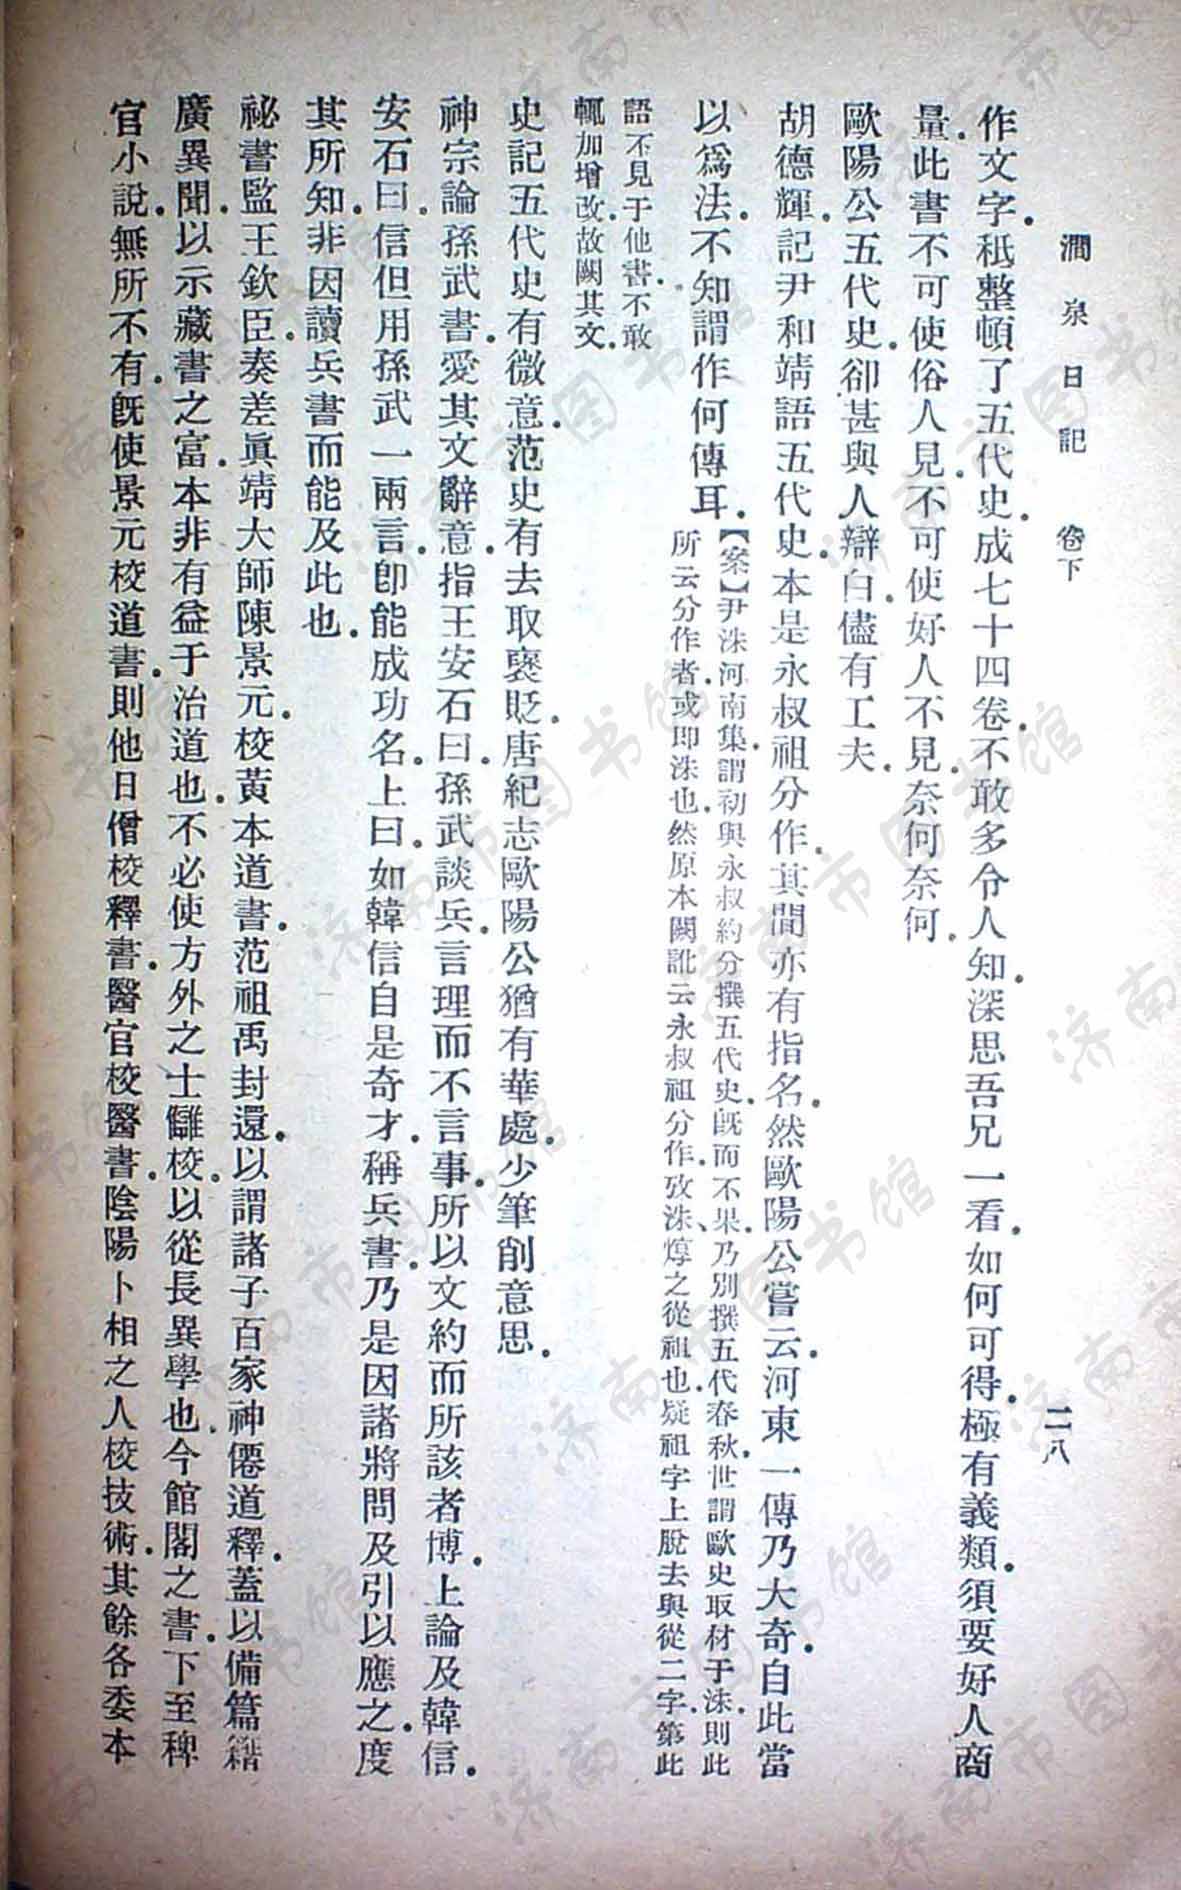 澗泉日記 卷下 二八
作文字。秖整頓了五代史。成七十四卷。不敢多令人知。深思吾兄一看。如何可得。極有義類。須要好人商
量。此書不可使俗人見。不可使好人不見。奈何奈何。
歐陽公五代史。卻甚與人辯白。儘有工夫。
胡德輝。記尹和靖語五代史。本是永叔祖分作。其間亦有指名。然歐陽公嘗云。河東一傳乃大奇。自此當
以爲法。不知謂作何傳耳。
【案】尹洙河南集。謂初與永叔約分撰五代史。既而不果。乃別撰五代春秋。世謂歐史取材于洙。則此
所云分作者。或即洙也。然原本闕訛云永叔祖分作。攷洙、焞之從祖也。疑祖字上脫去與從二字。第此
語不見于他書。不敢
輒加增改。故闕其文。
史記五代史有微意。范史有去取褒貶。唐紀志歐陽公猶有華處。少筆削意思。
神宗論孫武書。愛其文辭。意指王安石曰。孫武談兵。言理而不言事。所以文約而所該者博。上論及韓信。
安石曰。信但用孫武一兩言。即能成功名。上曰。如韓信自是奇才。稱兵書。乃是因諸將問及引以應之。度
其所知。非因讀兵書而能及此也。
祕書監王欽臣。奏差眞靖大師陳景元。校黃本道書。范祖禹封還。以謂諸子百家神僊道釋。蓋以備篇籍
廣異聞。以示藏書之富。本非有益于治道也。不必使方外之士讎校。以從長異學也。今館閣之書。下至稗
官小說。無所不有。既使景元校道書。則他日僧校釋書。醫官校醫書。陰陽卜相之人校技術。其餘各委本
济南市图书馆